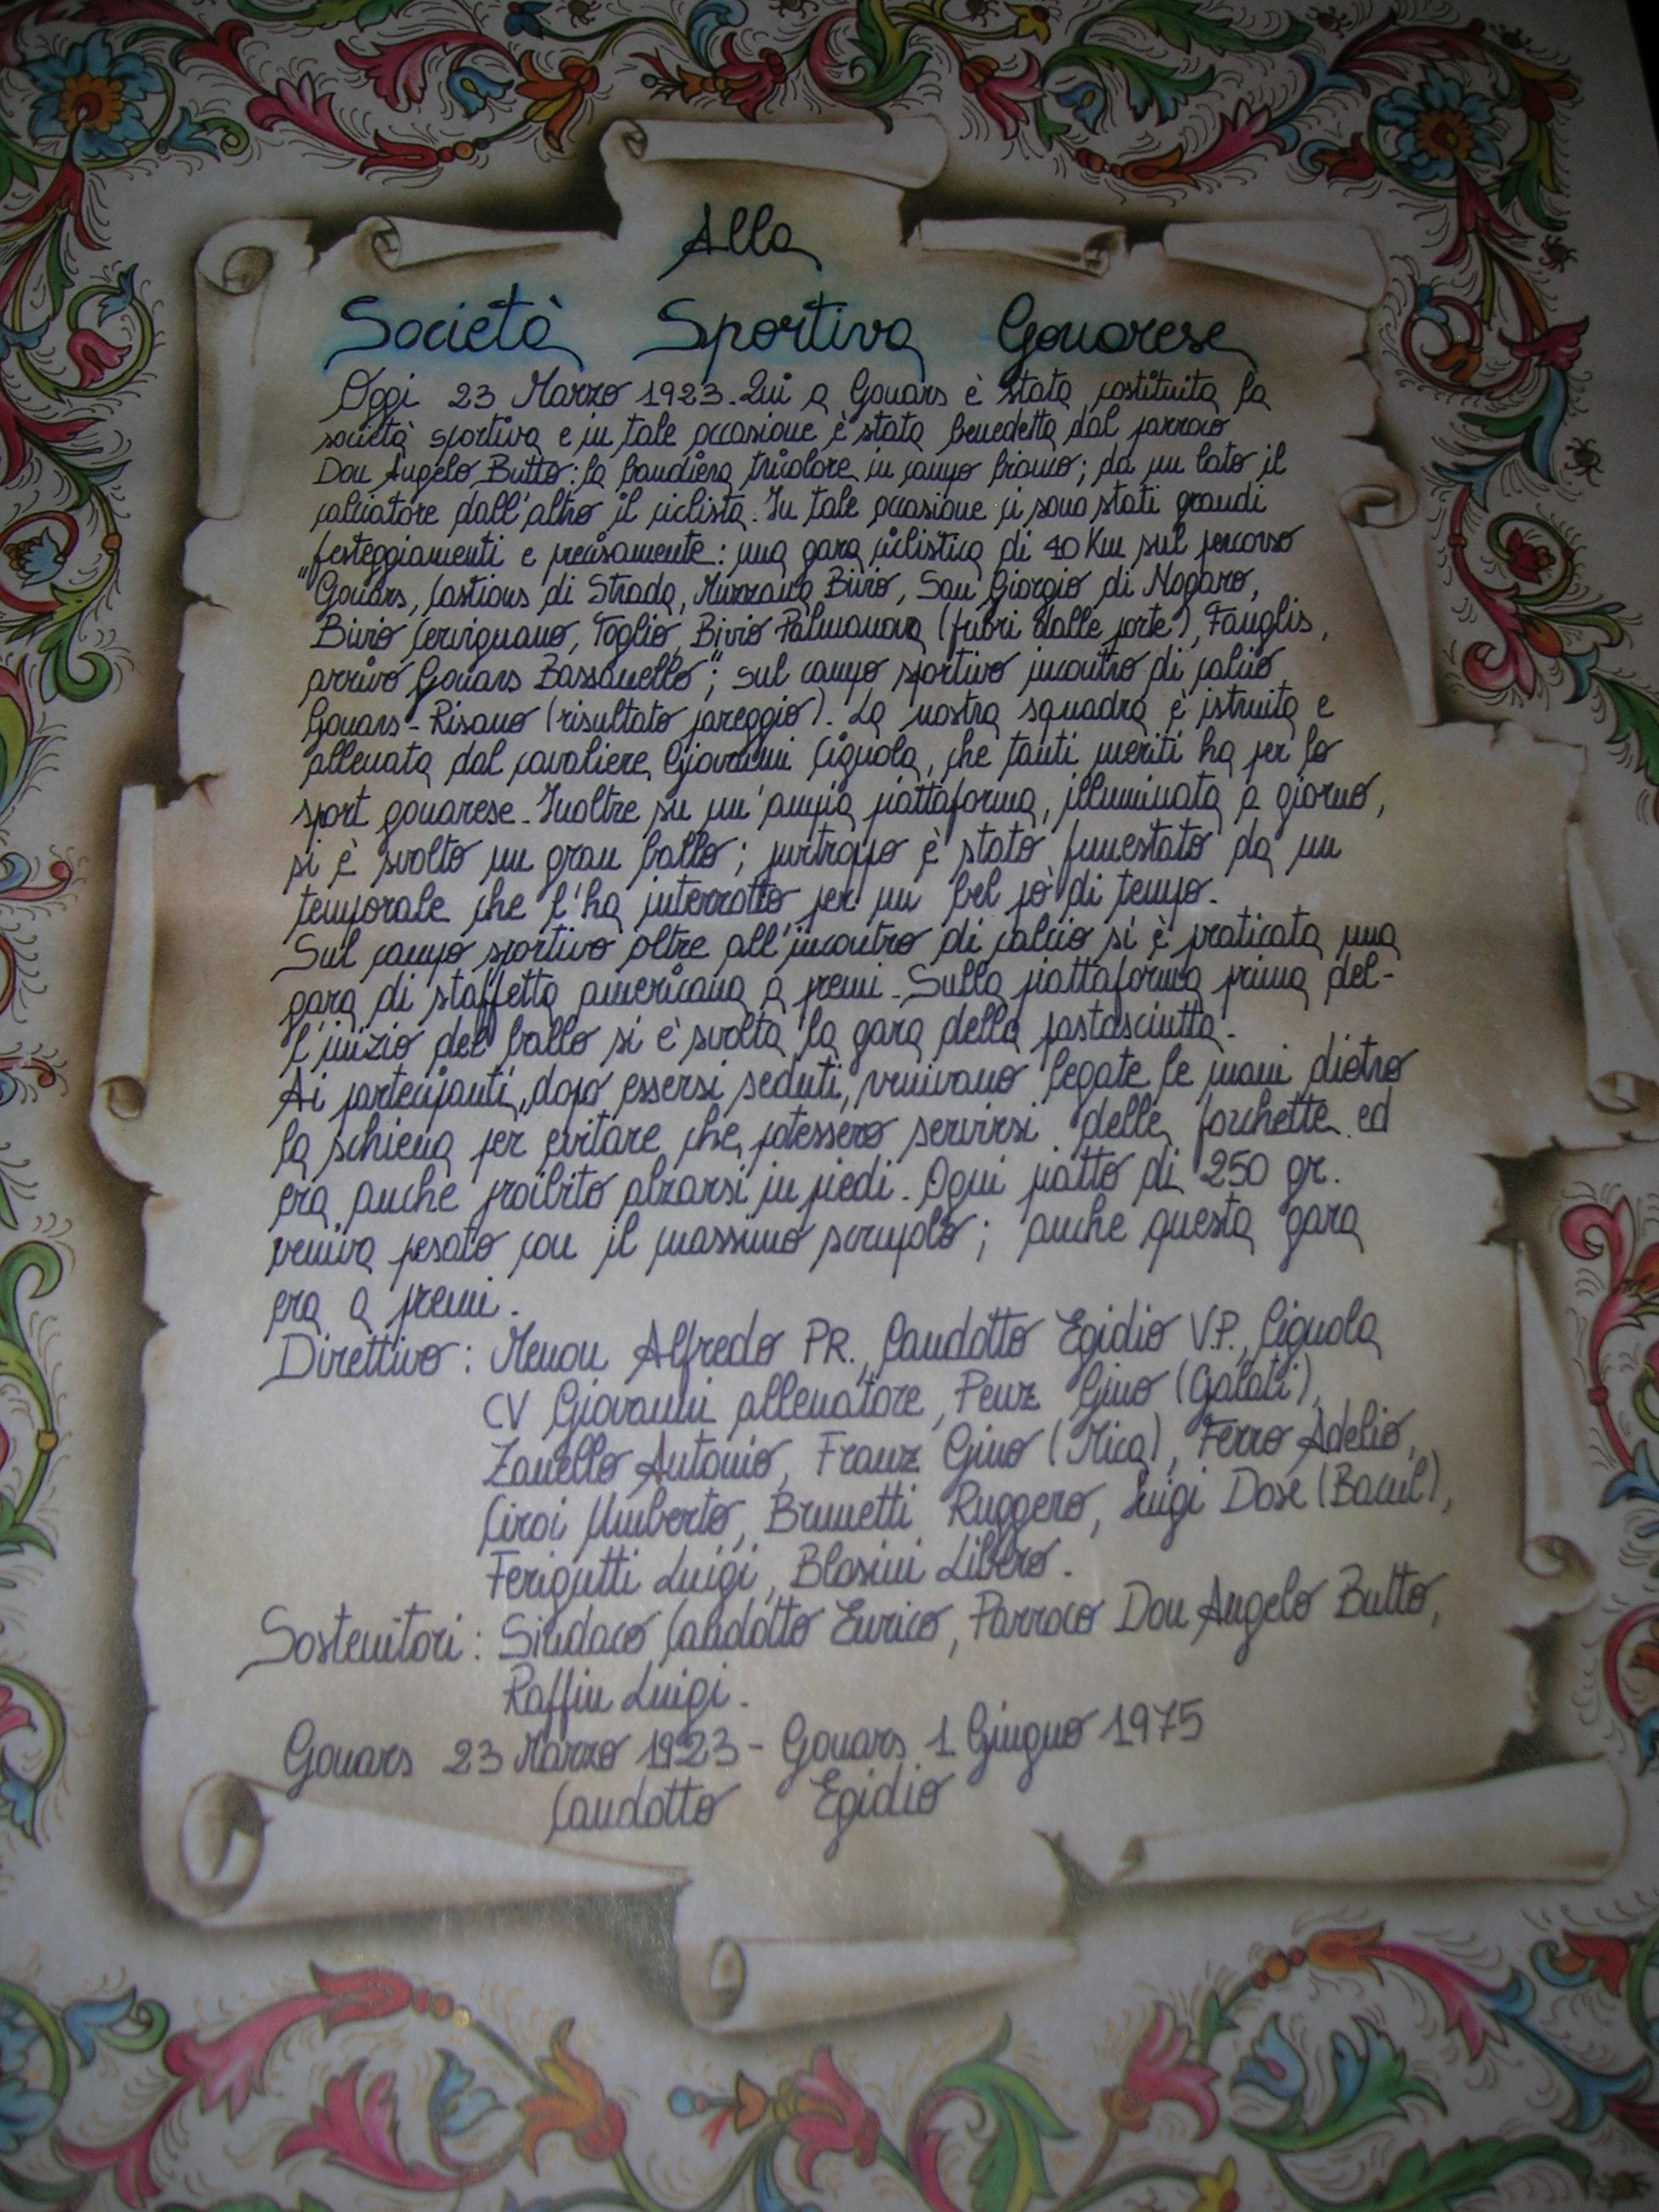 Alla
Società Sportiva Gonarese
Oggi 23 Marzo 1923. Qui a Gonars è stata costituita la
società sportiva e in tale occasione è stata benedetta dal parroco
Don Angelo Butto: la bandiera tricolore in campo bianco; da un lato il
calciatore dall'altro il ciclista. In tale occasione ci sono stati grandi
festeggiamenti e precisamente: una gara ciclistica di 40 Km sul percorso
"Gonars, Castions di Strada, Muzzana Bivio, San Giorgio di Nogaro,
Bivio Cervignano, Toglio, Bivio Palmanova (fuori dalle porte), Fauglis,
arrivo Gonars Bassanello"; sul campo sportivo incontro di calcio
Gonars - Risano (risultato pareggio). La nostra squadra è istruita e
allenata dal cavaliere Giovanni Cignola, che tanti meriti ha per lo
sport gonarese. Inoltre su un'ampia piattaforma, illuminata a giorno,
si è svolto un gran ballo; purtroppo è stato funestato da un
temporale che l'ha interrotto per un bel pò di tempo.
Sul campo sportivo oltre all'incontro di calcio si è praticata una
gara di staffetta americana a premi. Sulla piattaforma prima del-
l'inizio del ballo si è svolta la gara della pastasciutta.
Ai partecipanti, dopo essersi seduti, venivano legate le mani dietro
la schiena per evitare che potessero servirsi delle forchette ed
era anche proibito alzarsi in piedi. Ogni piatto di 250 gr.
veniva pesato con il massimo scrupolo; anche questa gara
era a premi.
Direttivo: Menon Alfredo PR., Candotto Egidio V.P., Cignola
CV Giovanni allenatore, Penz Gino (Galati),
Zanello Antonio, Franz Gino (Mica), Ferro Adelio,
Ciroi Umberto, Brunetti Ruggero, Luigi Dose (Bacul),
Ferigutti Luigi, Blasini Libero.
Sostenitori: Sindaco Candotto Enrico, Parroco Don Angelo Butto,
Raffin Luigi.
Gonars 23 Marzo 1923 - Gonars 1 Giugno 1975
Candotto Egidio